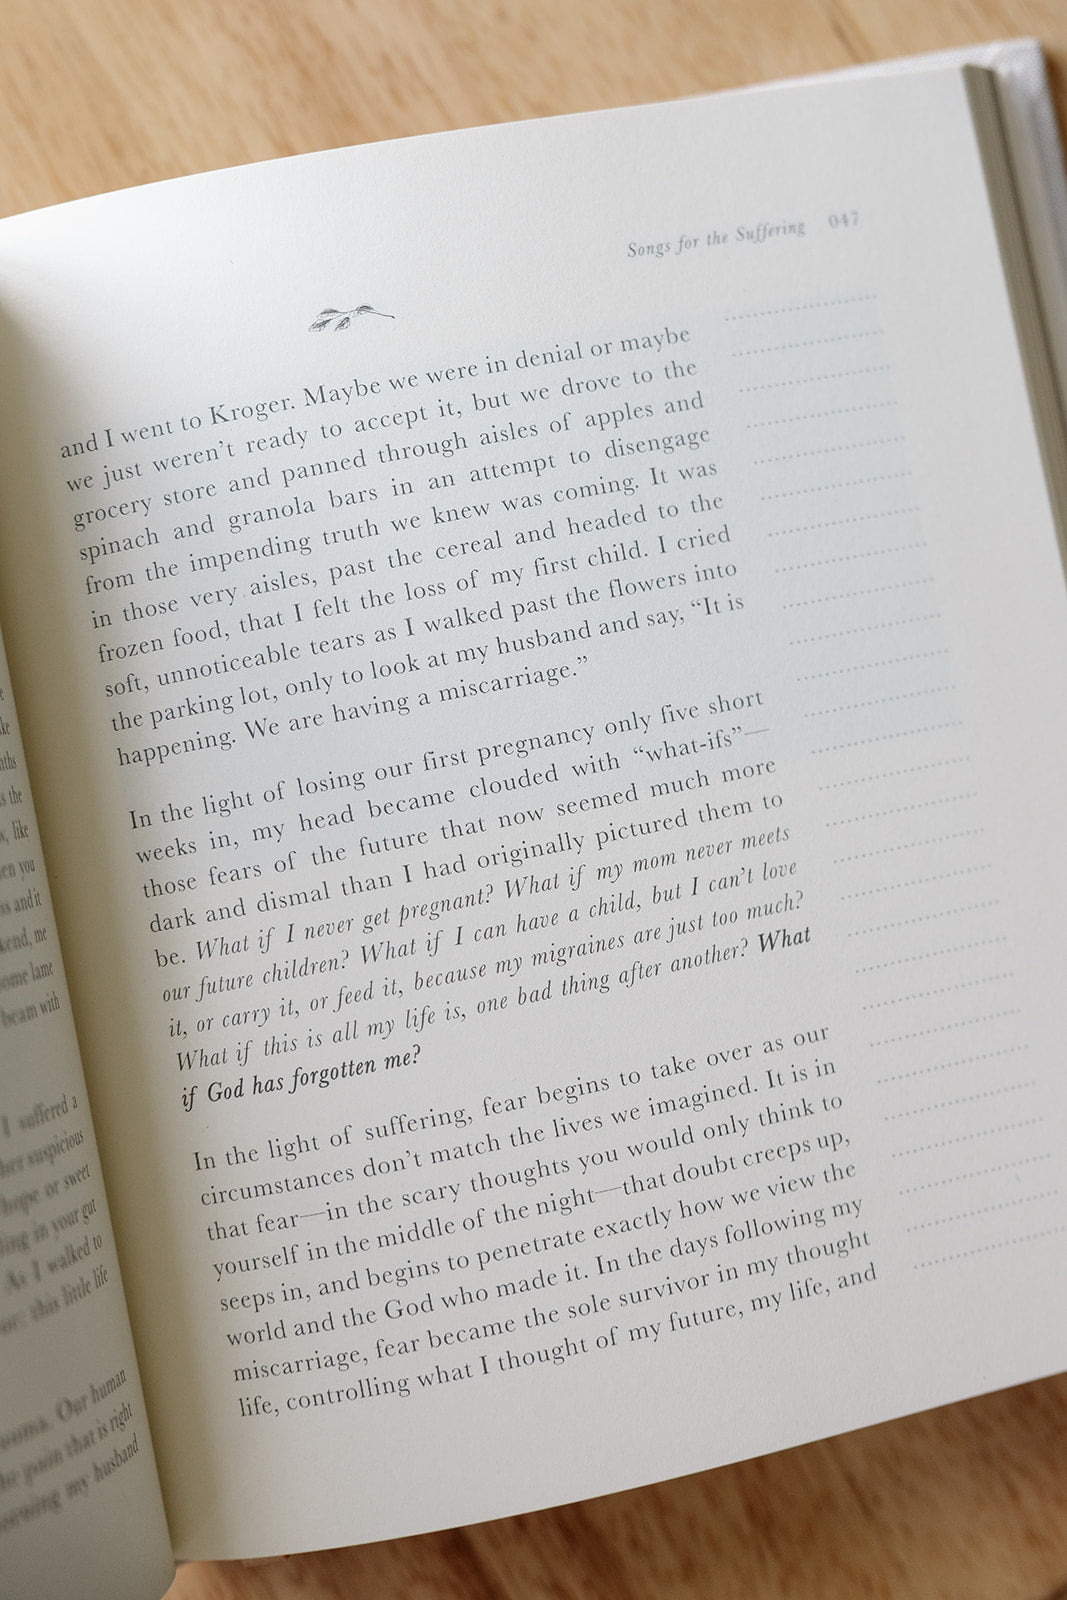 ke
nths
s the
w, like
en you
ss and it
kend, me
some lame
beam with
I suffered a
her suspicious
hope or sweet
ling in your gut
As I walked to
this little life
Our human
the pain that is right
my husband
Songs for the Suffering 047
and I went to Kroger. Maybe we were in denial or maybe
we just weren't ready to accept it, but we drove to the
grocery store and panned through aisles of apples and
spinach and granola bars in an attempt to disengage
from the impending truth we knew was coming. It was
in those very aisles, past the cereal and headed to the
frozen food, that I felt the loss of my first child. I cried
soft, unnoticeable tears as I walked past the flowers into
the parking lot, only to look at my husband and say, “It is
happening. We are having a miscarriage.”
In the light of losing our first pregnancy only five short
weeks in, my head became clouded with “what-ifs”—
those fears of the future that now seemed much more
dark and dismal than I had originally pictured them to
be. What if I never get pregnant? What if my mom never meets
our future children? What if I can have a child, but I can't love
it, or carry it, or feed it, because my migraines are just too much?
What if this is all my life is, one bad thing after another? What
if God has forgotten me?
In the light of suffering, fear begins to take over as our
circumstances don't match the lives we imagined. It is in
that fear—in the scary thoughts you would only think to
yourself in the middle of the night—that doubt creeps up,
seeps in, and begins to penetrate exactly how we view the
world and the God who made it. In the days following my
miscarriage, fear became the sole survivor in my thought
life, controlling what I thought of my future, my life, and